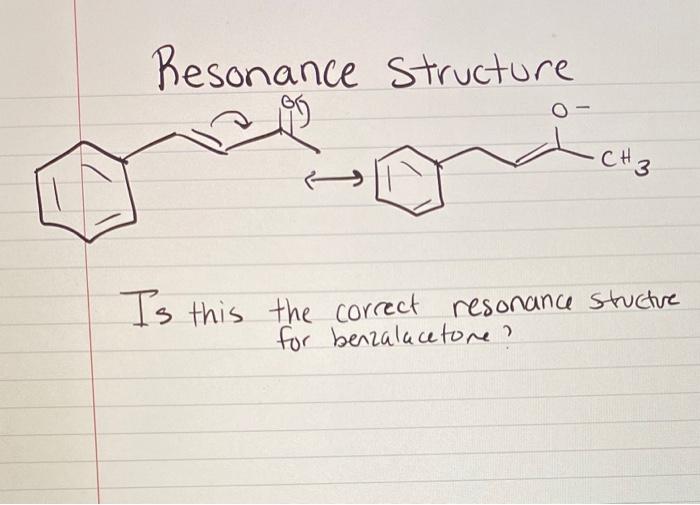 Resonance Structure
O
O-
CH3
Is this the correct resonance structure
for benzalacetone?